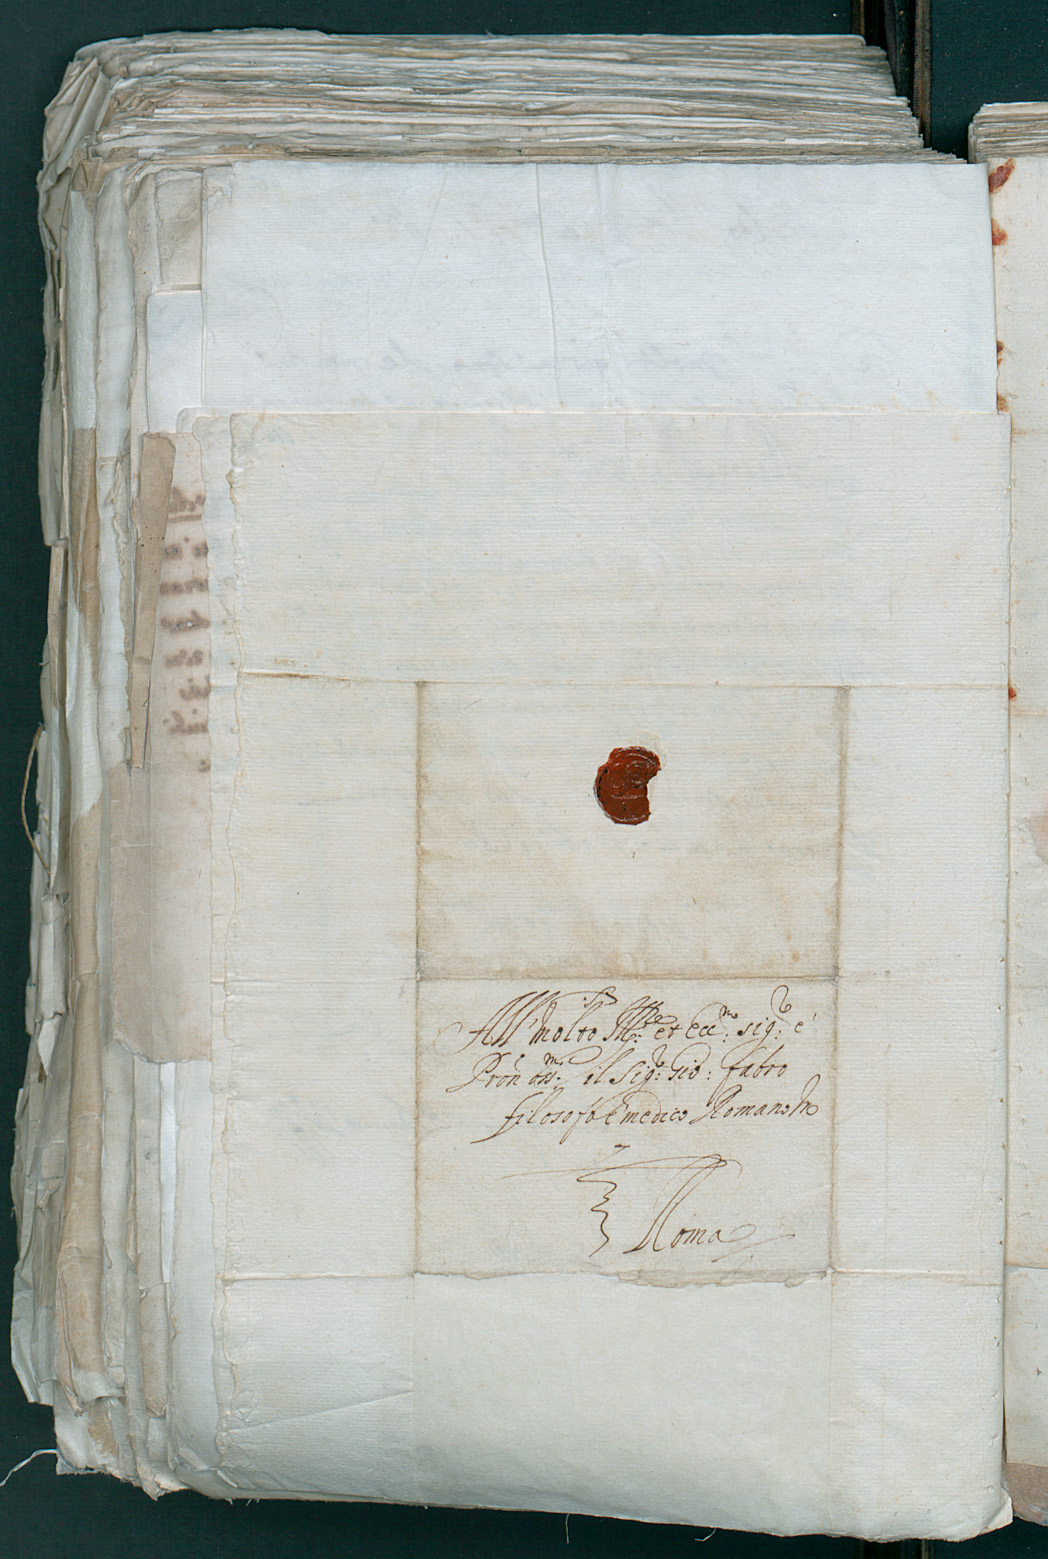 All' molto Ill.re et Ecc.mo sig.r é
Pron oss.mo il Sig.r Gio: fabro
filosofo é medico Romano
Roma